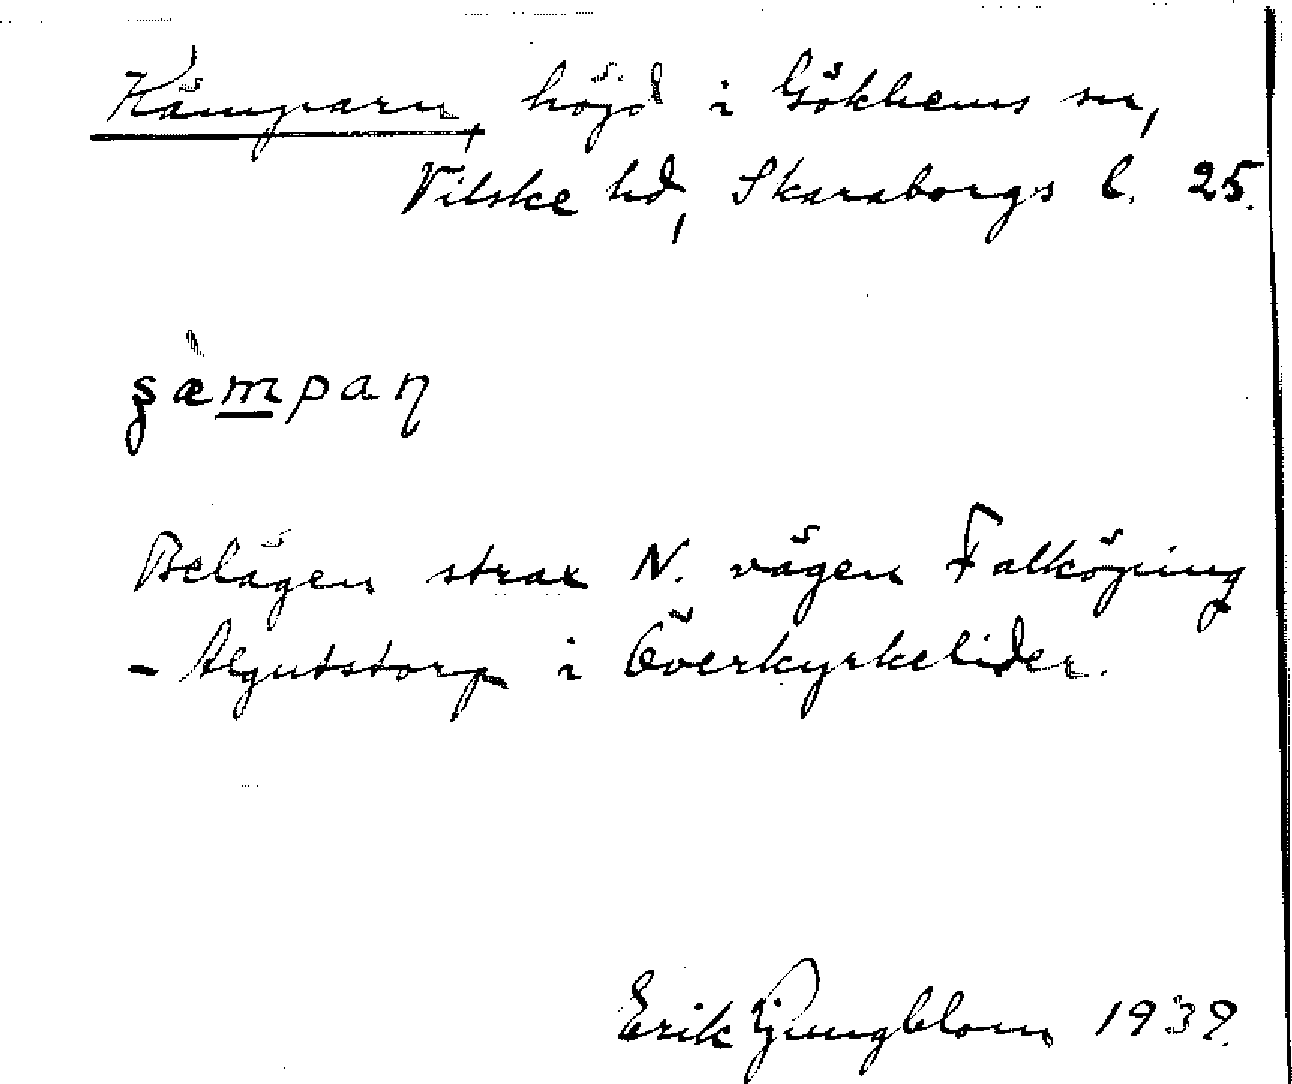 Kämparn, höjd i Gökhems sn,
Vilske hd, Skaraborgs l. 25.
Belägen strax N. vägen Falköping
- Algutstorp i Överkyrkelider.
Erik Ljungblom 1939.